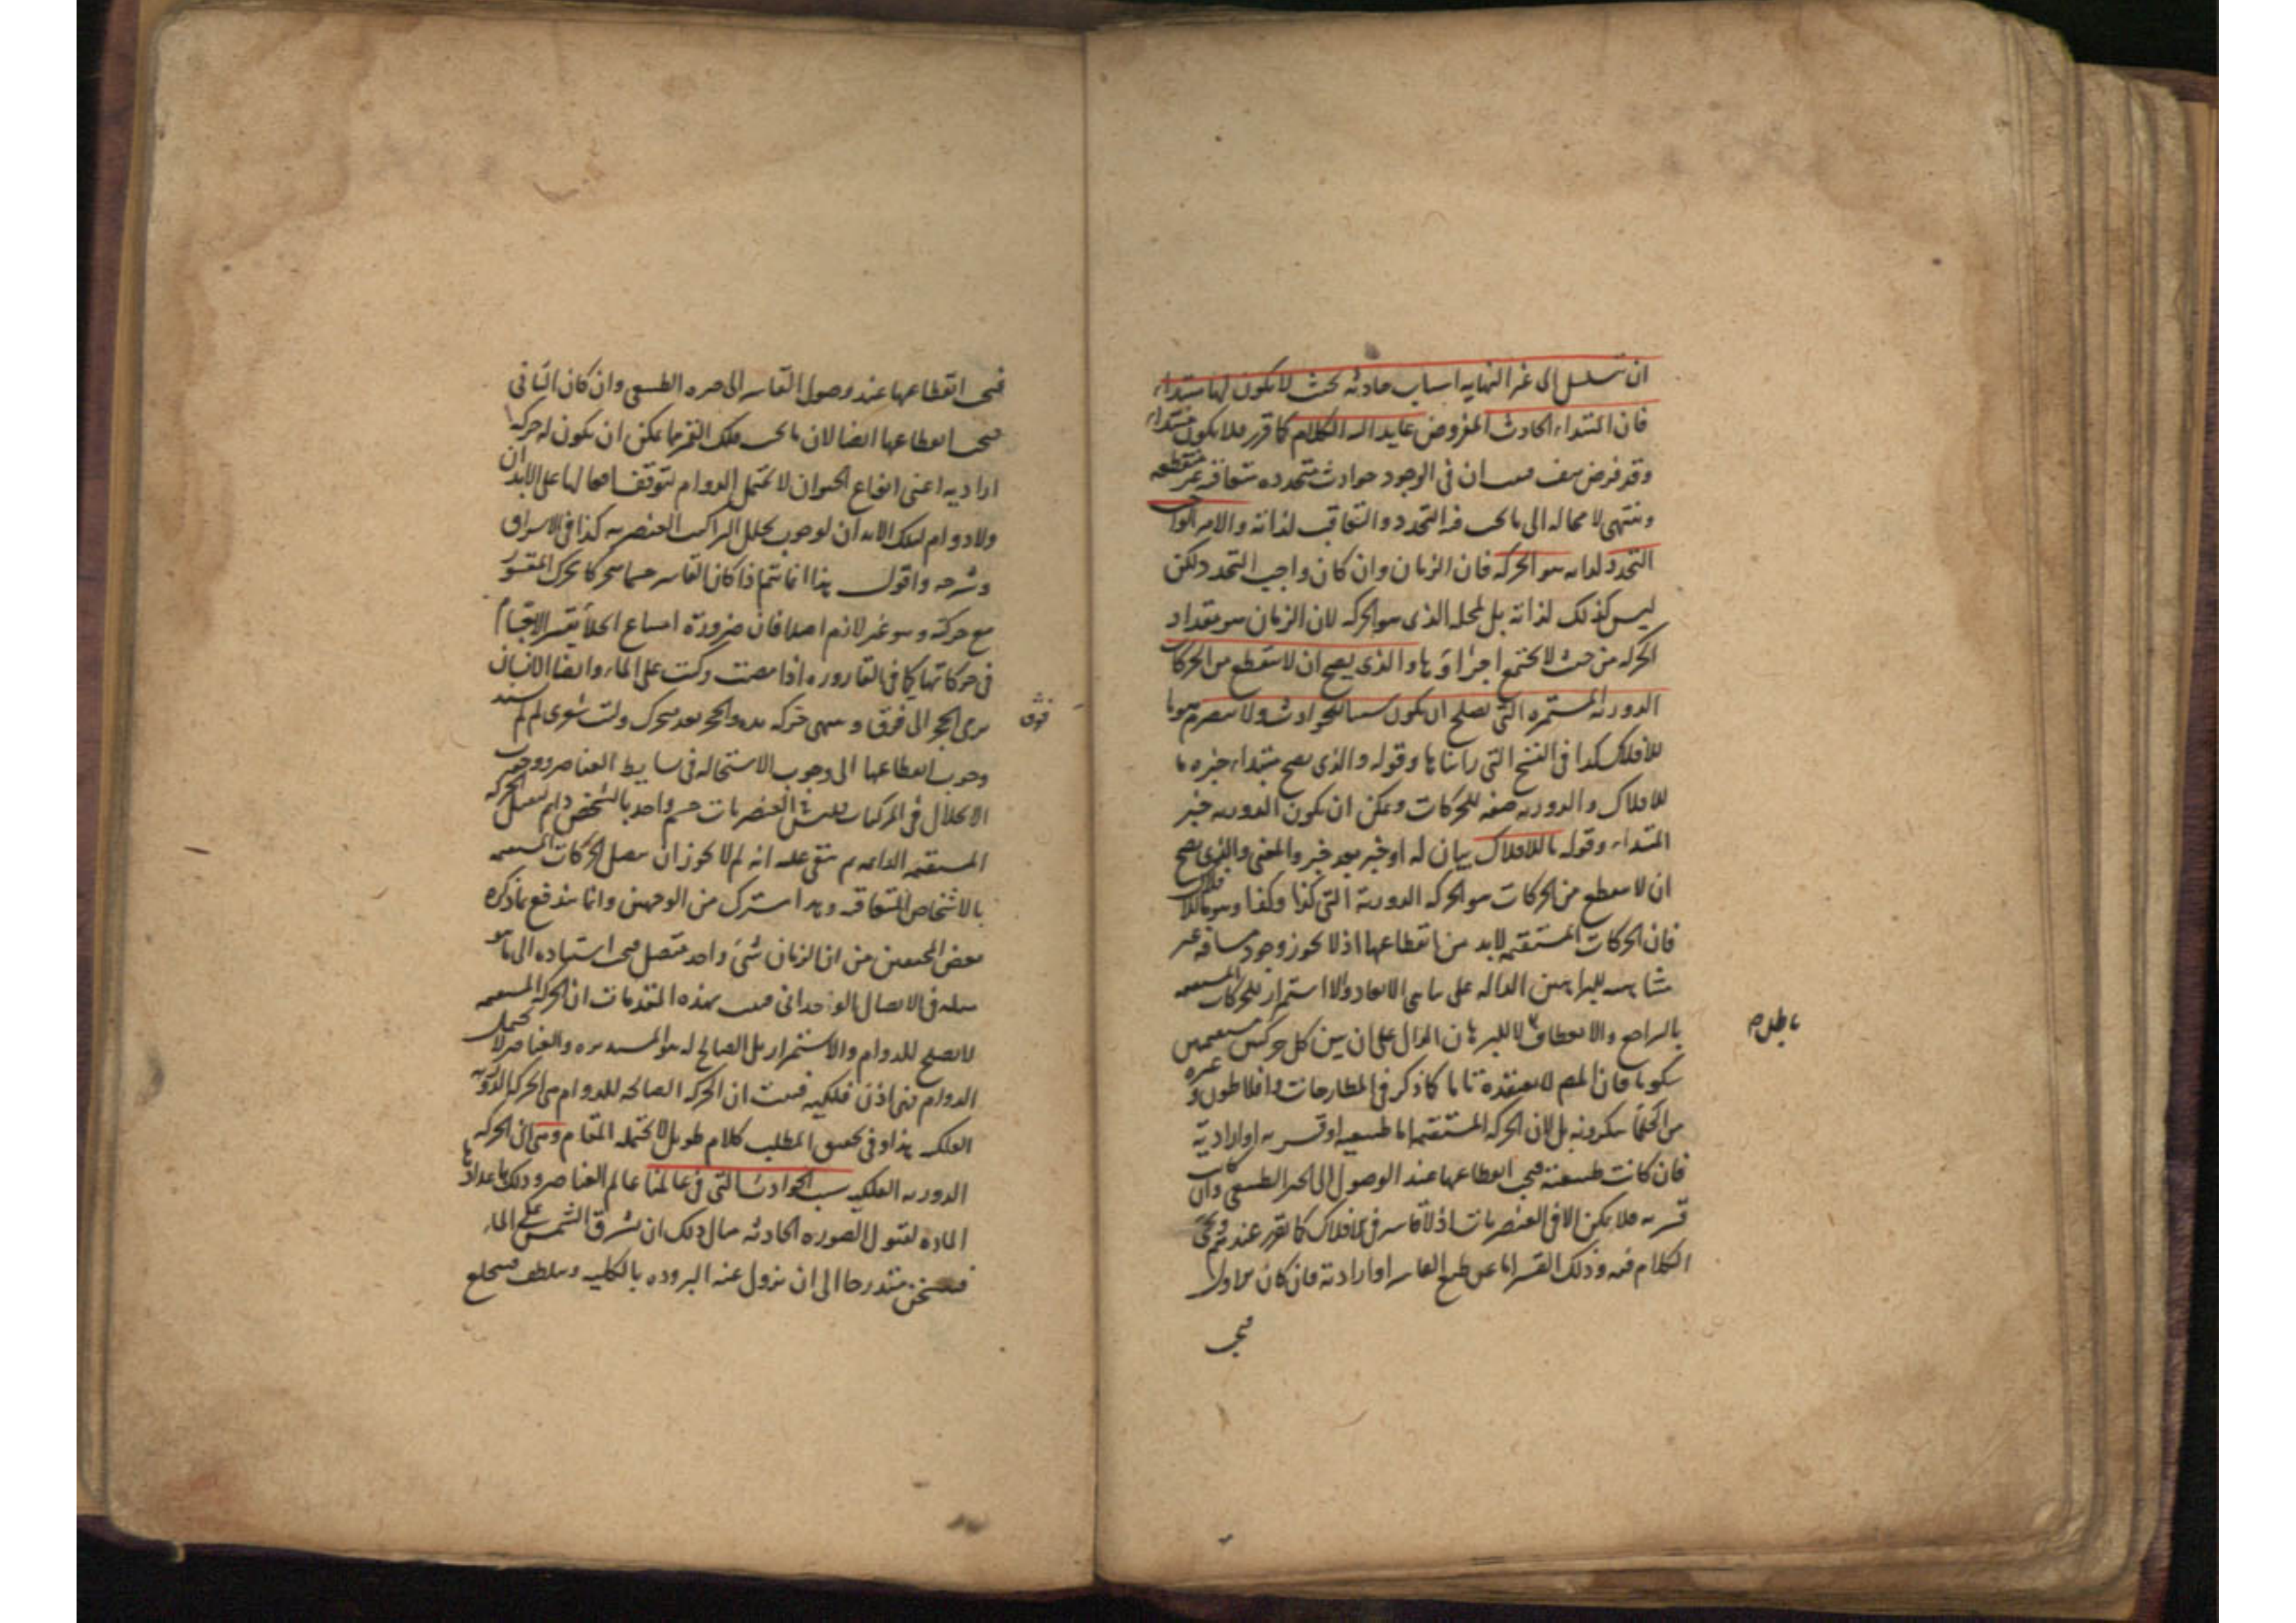 ان تتسلسل الى غير النهاية اسباب حادثه بحيث لا يكون لها مبتداء
فان المبتداء الحادث المفروض عايد اليه الكلام كما قرر فلا يكون مبتداء
وقد فرض هف فيجب ان في الوجود حوادث متجدده متعاقبه غير منقطعه
وينتهى لا محاله الى ما يجب فيه التجدد والتعاقب لذاته والامر الواجب
التجدد لذاته هو الحركه فان الزمان وان كان واجب التجدد لكن
ليس كذلك لذاته بل لمحله الذى هو الحركه لان الزمان هو مقدار
الحركه من حيث لا يجتمع اجزاؤها والذى يصح ان لا ينقطع من الحركات
الدوريه المستمره التى تصلح ان يكون سببا للحوادث ولا ينصرم هو ما
للافلاك كذا فى النسخ التى رايناها وقوله والذى يصح مبتداء خبره ما
للافلاك والدوريه صفه للحركات ويمكن ان يكون الدوريه خبر
المبتداء وقوله ما للافلاك بيان له او خبر بعد خبر والمعنى والذى يصح
ان لا ينقطع من الحركات هو الحركه الدورية التى كذا وكذا وهو ما للافلاك
فان الحركات المستقيمه لابد من انقطاعها اذ لا يجوز وجود مسافه غير
متناهيه للبراهين الداله على تناهى الابعاد ولا استمرار للحركات المستقيمه
بالتراجع والانعطاف لا للبرهان الدال على ان بين كل حركتين مستقيمتين
سكونا فان المصـ لا يعتقده تاما كما ذكر فى المطارحات وافلاطون وغيره
من الحكماء ينكرونه بل لان الحركه المستقيمه اما طبيعيه او قسريه او ارادية
فان كانت طبيعية فيجب انقطاعها عند الوصول الى الحيز الطبيعى وان كانت
قسريه فلا يمكن الا فى العنصريات اذ لا قاسر فى الافلاك كما تقرر عندهم
الكلام فيه وذلك القسر اما عن طبع القاسر او ارادته فان كان الاول
فيجب
باطل م
فيجب انقطاعها عند وصول القاسر الى حيزه الطبيعى وان كان الثانى
فيجب انقطاعها ايضا لان ما تحت فلك القمر مما يمكن ان يكون له حركه
اراديه اعنى انواع الحيوان لا يحتمل الدوام لتوقف افعالها على الابدان
ولا دوام لتلك الابدان لوجوب تحلل التراكيب العنصريه كذا فى الاشراق
وشرحه واقول هذا انما يتم اذا كان القاسر جسما متحركا يحرك المقسور
مع حركته وهو غير لازم اصلا فان ضرورة امتناع الخلأ يقسر الاجسام
فى حركاتها كما فى القاروره اذا مصت وكبت على الماء وايضا الانسان
يرمى الحجر الى فوق وينتهى حركه يده والحجر بعد متحرك وليت شعرى لم لم يسند
فوق
وجوب انقطاعها الى وجوب الاستحاله فى بسايط العناصر ووجوب
الانحلال فى المركبات فليس فى العنصريات جسم واحد بالشخص دايم ليقبل الحركه
المستقيمه الدايمه ثم بقى عليه انه لم لا يجوز ان يتصل الحركات المستقيمه
بالاشخاص المتعاقبه وهذا مشترك من الوجهين وانما يندفع بما ذكره
بعض المحققين من ان الزمان شئ واحد متصل فيجب استناده الى ما هو
مثله فى الاتصال الوحدانى فثبت بهذه المقدمات ان الحركه المستقيمه
لا تصلح للدوام والاستمرار بل الصالح له هو المستديره والعناصر لا يحتمل
الدوام فهى اذن فلكيه فثبت ان الحركه الصالحه للدوام هى الحركه الدوريه
الفلكيه هذا وفى تحقيق المطلب كلام طويل لا يحتمله المقام وهى اى الحركه
الدوريه الفلكيه سبب الحوادث التى فى عالمنا عالم العناصر وذلك باعدادها
الماده لقبول الصوره الحادثه مثال ذلك ان تشرق الشمس على الماء
فيتسخن متدرجا الى ان يزول عنه البروده بالكليه ويتلطف فيخلع